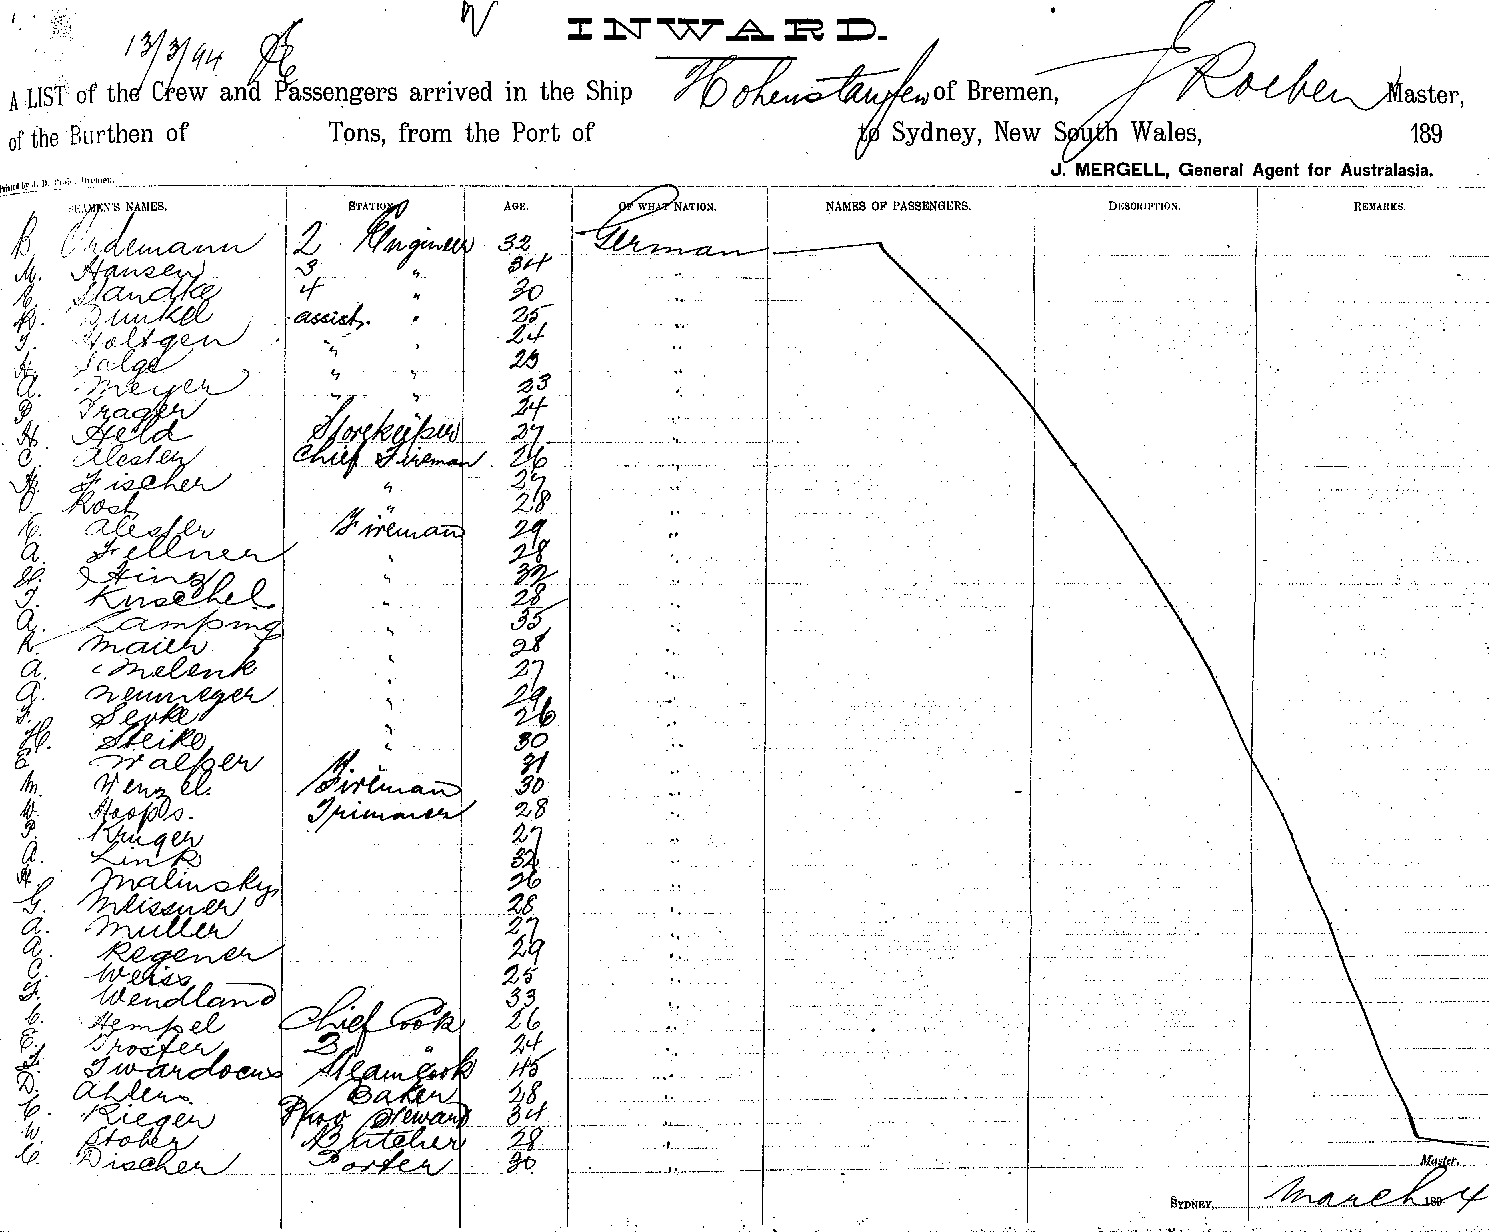 13/3/94
INWARD.
A LIST of the Crew and Passengers arrived in the Ship Hohenstaufen of Bremen, J Roeben Master,
of the Burthen of Tons, from the Port of to Sydney, New South Wales, 189
J. MERGELL, General Agent for Australasia.
SEAMEN'S NAMES. STATION. AGE. OF WHAT NATION. NAMES OF PASSENGERS. DESCRIPTION. REMARKS.
B Ordemann 2 Engineer 32 German
M. Hansen 3 " 34 "
Standke 4 " 30 "
Bunkel assist. " 25 "
Holtgen " " 24 "
Salge " " "
A. Meyer " " 23 "
P Trager " " 24 "
H. Held Storekeeper 27 "
C. Alester Chief Fireman 26 "
Fischer " 27 "
Rost " 28 "
C. Alester Fireman 29 "
A. Fellner " 28 "
H. Hinz " 32 "
F. Kuschel " 28 "
A. Lamping " 35 "
R Maier " 28 "
A. Melenk " 27 "
A. Neumeyer " 29 "
F. Sevke " 26 "
H. Steike " 30 "
E Walper " 31 "
M. Wenzel Fireman 30 "
W. Hoops. Trimmer 28 "
P. Kruger 27 "
A. Link 32 "
Malinsky 26 "
G. Meissner 28 "
A. Muller 27 "
A. Regener 29 "
C. Weiss 25 "
F. Wendland 33 "
C. Hempel Chief Cook 26 "
E. Troster 2 " 24 "
F. Twardocus Steamcook 45 "
D. Ahlers Baker 28 "
C. Rieger Prov Steward 34 "
W. Stober Butcher 28 "
C. Discher Porter 30 "
Master.
SYDNEY, March 189 4